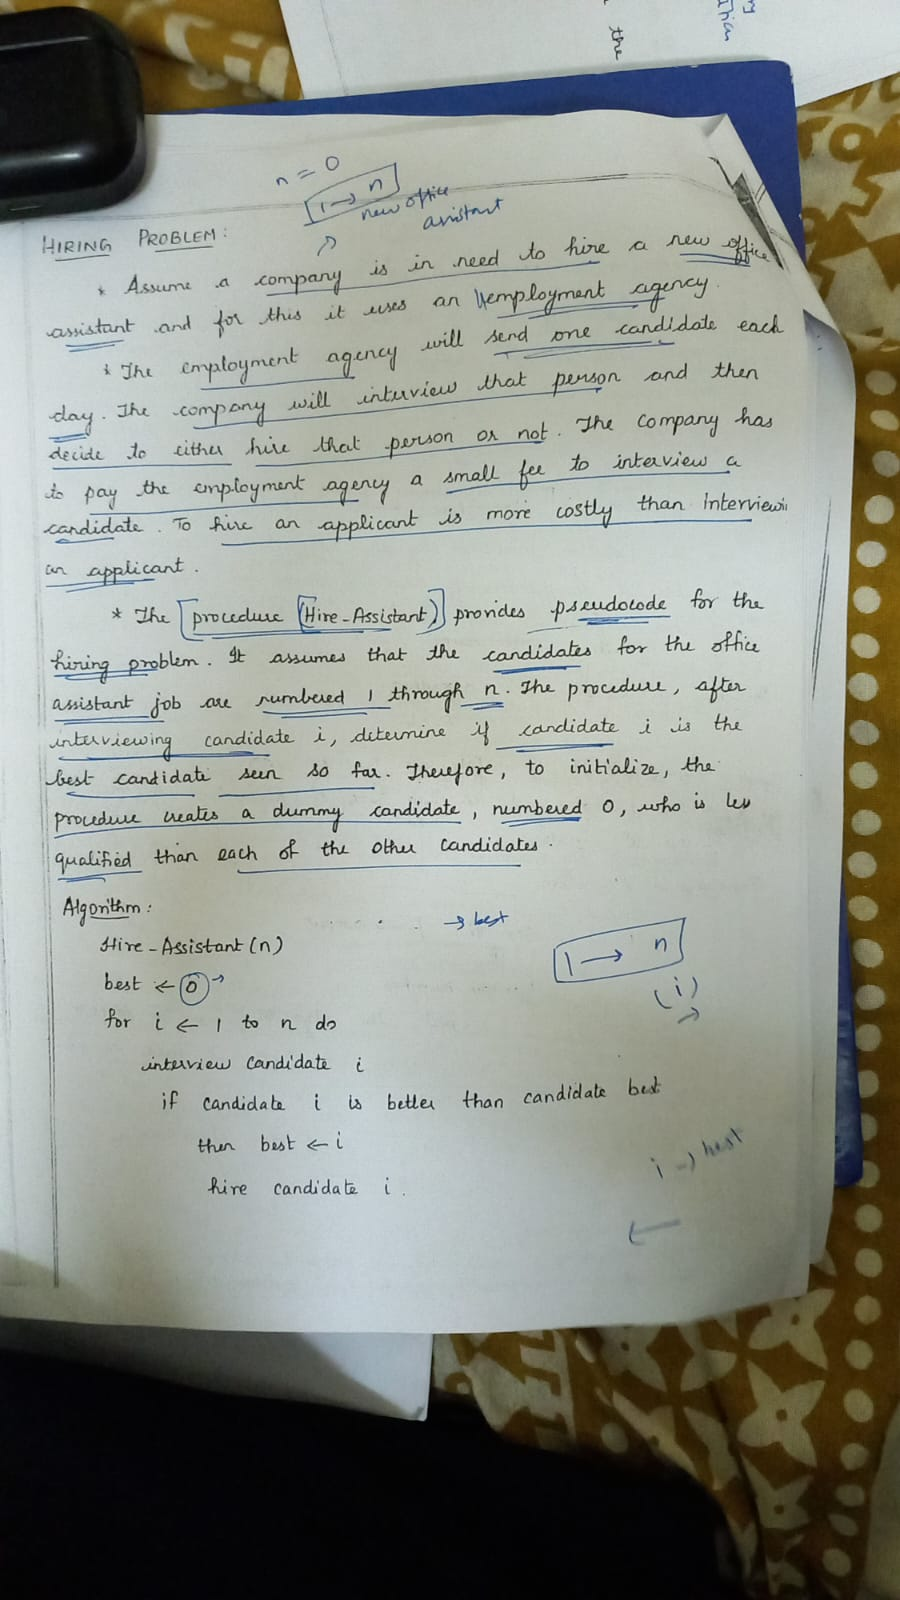 the
n = 0
1 → n
new office
assistant
HIRING PROBLEM:
* Assume a company is in need to hire a new office
assistant and for this it uses an employment agency.
* The employment agency will send one candidate each
day. The company will interview that person and then
decide to either hire that person or not. The company has
to pay the employment agency a small fee to interview a
candidate. To hire an applicant is more costly than interviewin
an applicant.
* The [procedure [Hire-Assistant)] provides pseudocode for the
hiring problem. It assumes that the candidates for the office
assistant job are numbered 1 through n. The procedure, after
interviewing candidate i, determine if candidate i is the
best candidate seen so far. Therefore, to initialize, the
procedure creates a dummy candidate, numbered 0, who is less
qualified than each of the other candidates.
Algorithm:
→ best
Hire-Assistant (n)
1 → n
best ← 0 →
(i)
for i ← 1 to n do
interview candidate i
if candidate i is better than candidate best
then best ← i
i → best
hire candidate i.